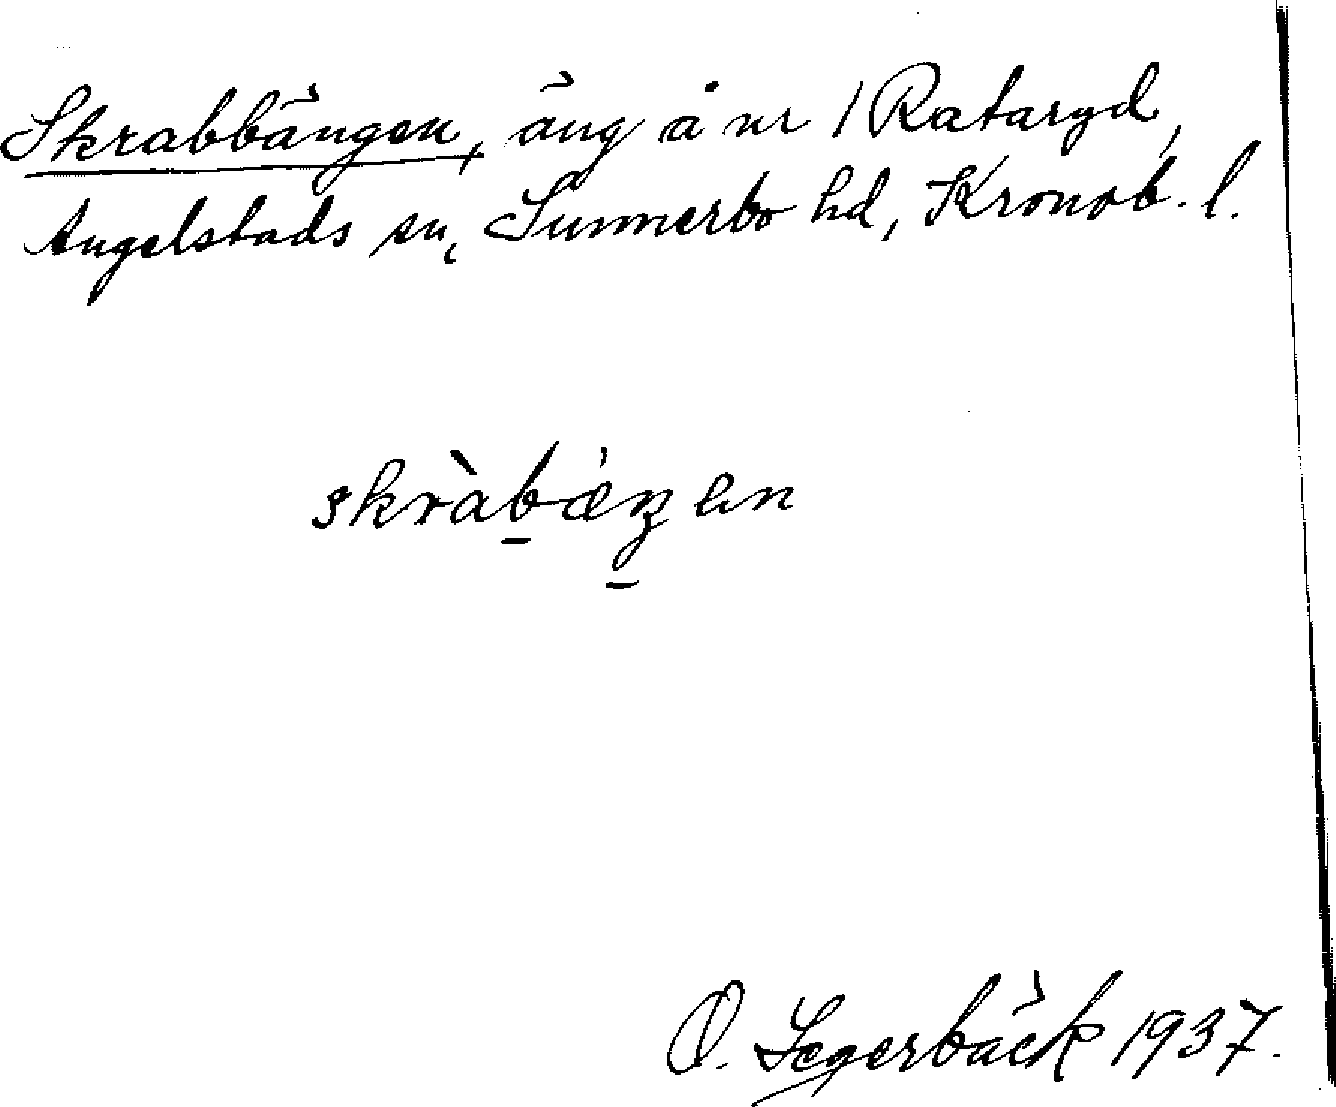 Skrabbängen, äng å nr 1 Rataryd,
Angelstads sn, Sunnerbo hd, Kronob. l.
skràb̲æŋ̲en
O. Segerbäck 1937.